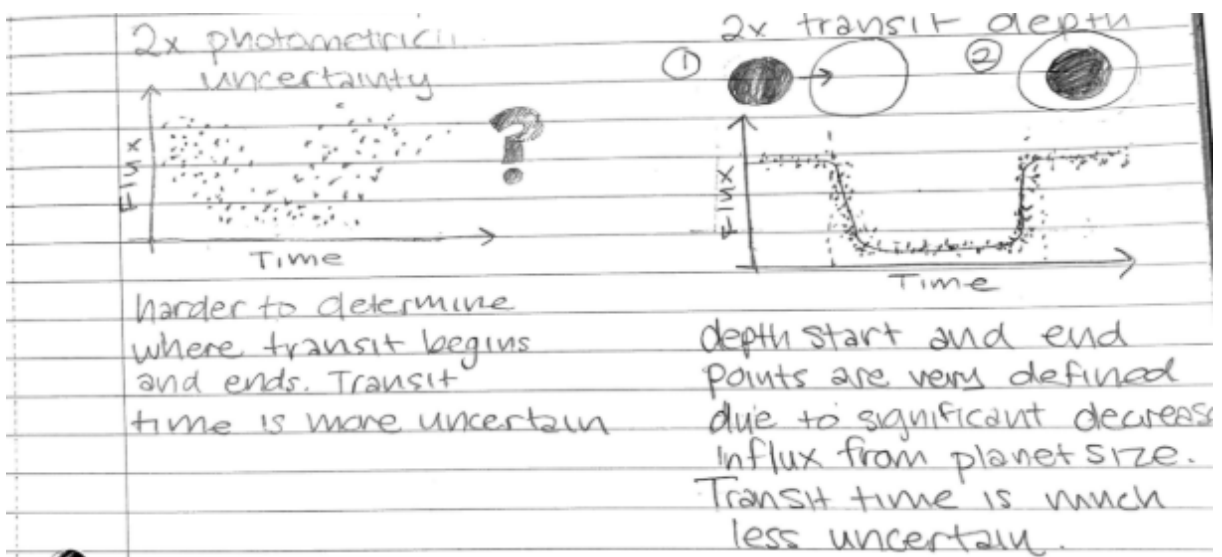 2x photometric
uncertainty
Flux
?
Time
harder to determine
where transit begins
and ends. Transit
time is more uncertain
2x transit depth
① ②
Flux
Time
depth start and end
points are very defined
due to significant decreas
influx from planet size.
Transit time is much
less uncertain.